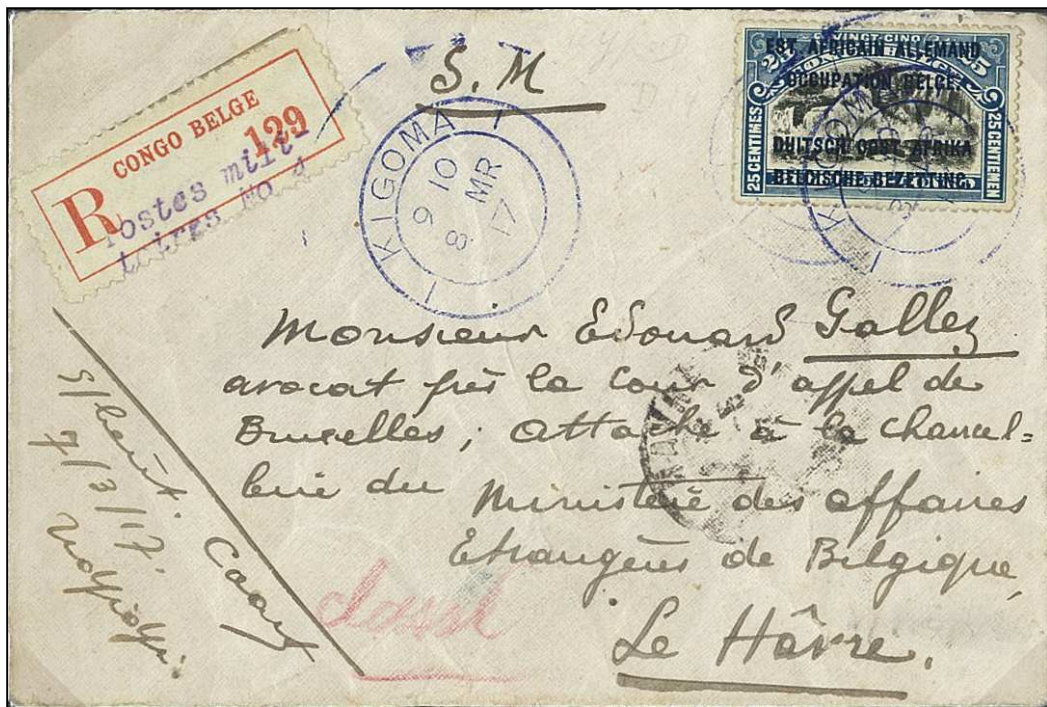 S. M
CONGO BELGE
R 129
Postes mili-
taires No. 1
KIGOMA
9 10
8 MR 17
VINGT-CINQ
EST. AFRICAIN ALLEMAND
OCCUPATION BELGE.
DUITSCH OOST AFRIKA
BELGISCHE BEZETTING.
25 CENTIMES
25 CENTIEMEN
Monsieur Edouard Gallez
avocat près la Cour d'appel de
Bruxelles; Attaché à la chancel=
lerie du Ministère des affaires
Etrangères de Belgique,
Le Hâvre.
S/Lieut.
7/3/17.